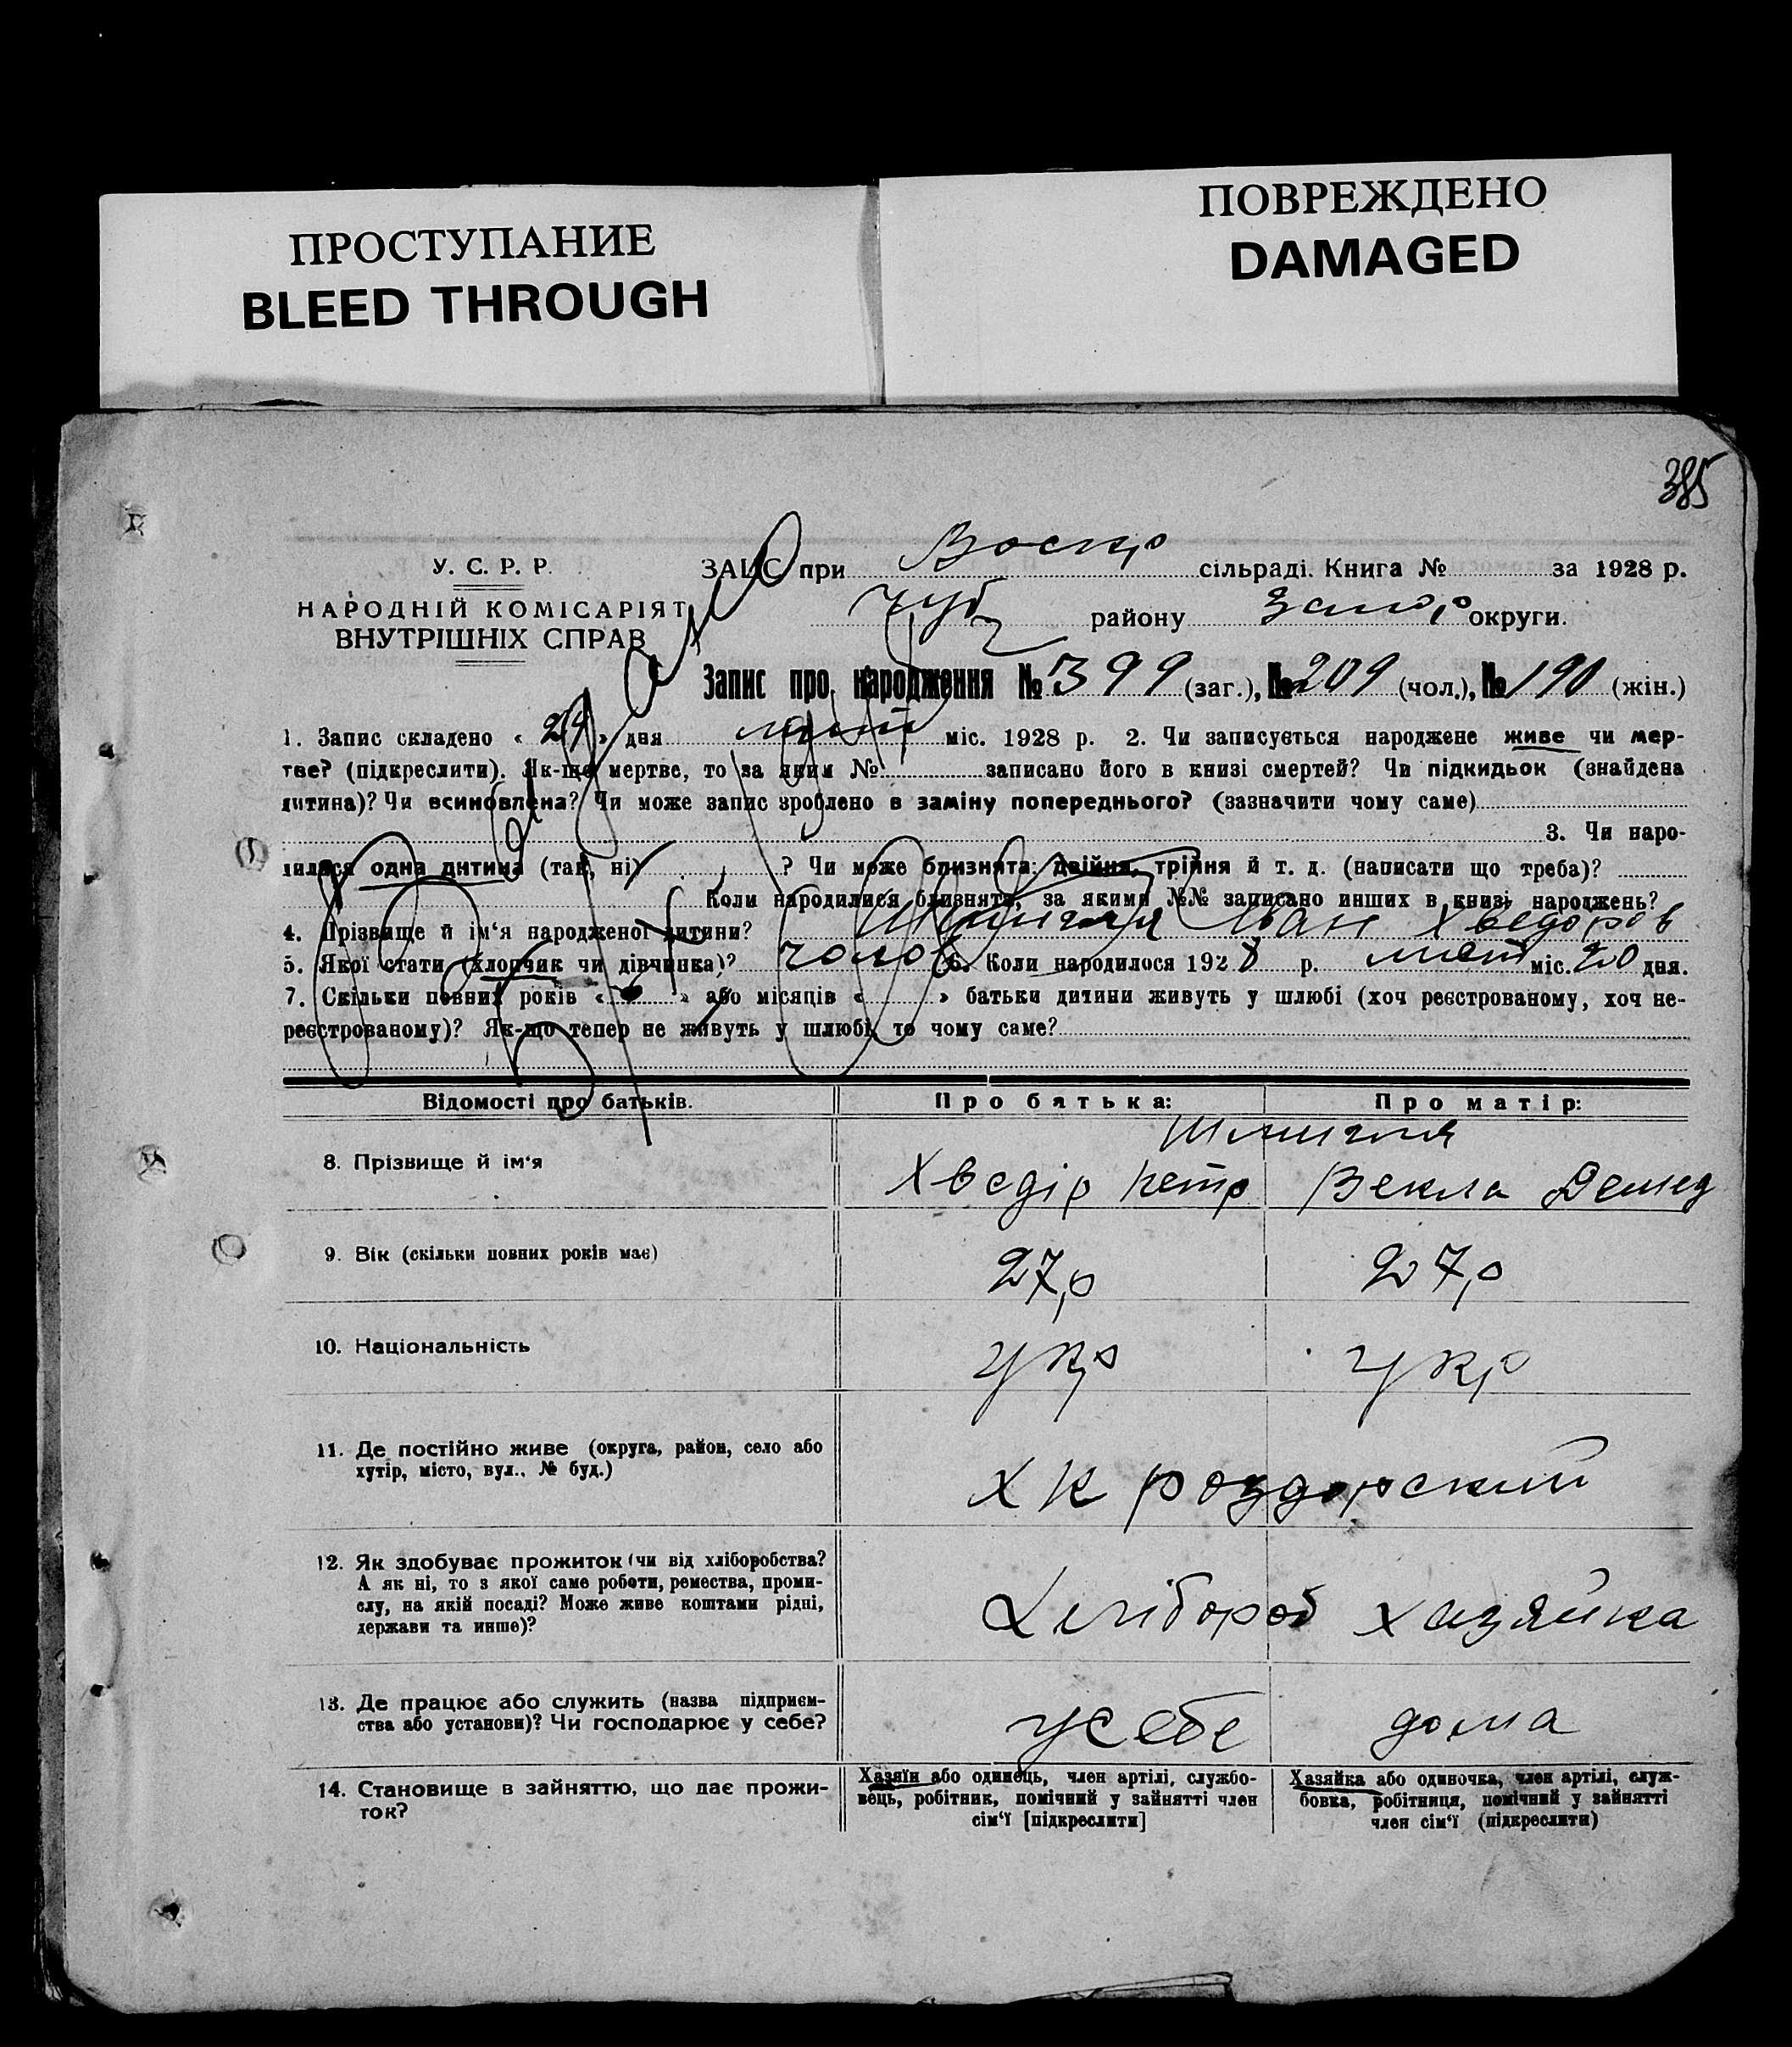 ПРОСТУПАНИЕ
BLEED THROUGH
ПОВРЕЖДЕНО
DAMAGED
385
У. С. Р. Р.
НАРОДНІЙ КОМІСАРІЯТ
ВНУТРІШНІХ СПРАВ
ЗАГС при Воскр сільраді. Книга № за 1928 р.
Чуб району Запор округи.
Запис про народження № 399 (заг.), № 209 (чол.), № 190 (жін.)
1. Запис складено « 29 » дня міс. 1928 р. 2. Чи записується народжене живе чи мер-
тве? (підкреслити). Як-що мертве, то за яким № записано його в книзі смертей? Чи підкидьок (знайдена
дитина)? Чи всиновлена? Чи може запис зроблено в заміну попереднього? (зазначити чому саме)
3. Чи наро-
дилася одна дитина (так, ні) ? Чи може близнята: двійня, трійня й т. д. (написати що треба)?
Коли народилися близнята, за якими №№ записано инших в книзі народжень?
4. Прізвище й ім‘я народженої дитини? Іван Хведоров
5. Якої стати (хлопчик чи дівчинка)? чолов 6. Коли народилося 1928 р. міс. 20 дня.
7. Скільки повних років « » або місяців « » батьки дитини живуть у шлюбі (хоч реєстрованому, хоч не-
реєстрованому)? Як-що тепер не живуть у шлюбі, то чому саме?
Відомості про батьків. Про батька: Про матір:
8. Прізвище й ім‘я Хведір Петр Векла Демид
9. Вік (скільки повних років має) 27 р 27 р
10. Національність укр укр
11. Де постійно живе (округа, район, село або
хутір, місто, вул., № буд.) х К роздорский
12. Як здобуває прожиток (чи від хліборобства?
А як ні, то з якої саме роботи, ремества, проми-
слу, на якій посаді? Може живе коштами рідні,
держави та инше)? Хлібороб хазяйка
13. Де працює або служить (назва підприєм-
ства або установи)? Чи господарює у себе? усебе дома
14. Становище в зайняттю, що дає прожи-
ток?
Хазяїн або одинець, член артілі, службо-
вець, робітник, помічний у зайнятті член
сім‘ї [підкреслити]
Хазяйка або одиночка, член артілі, служ-
бовка, робітниця, помічний у зайнятті
член сім‘ї (підкреслити)